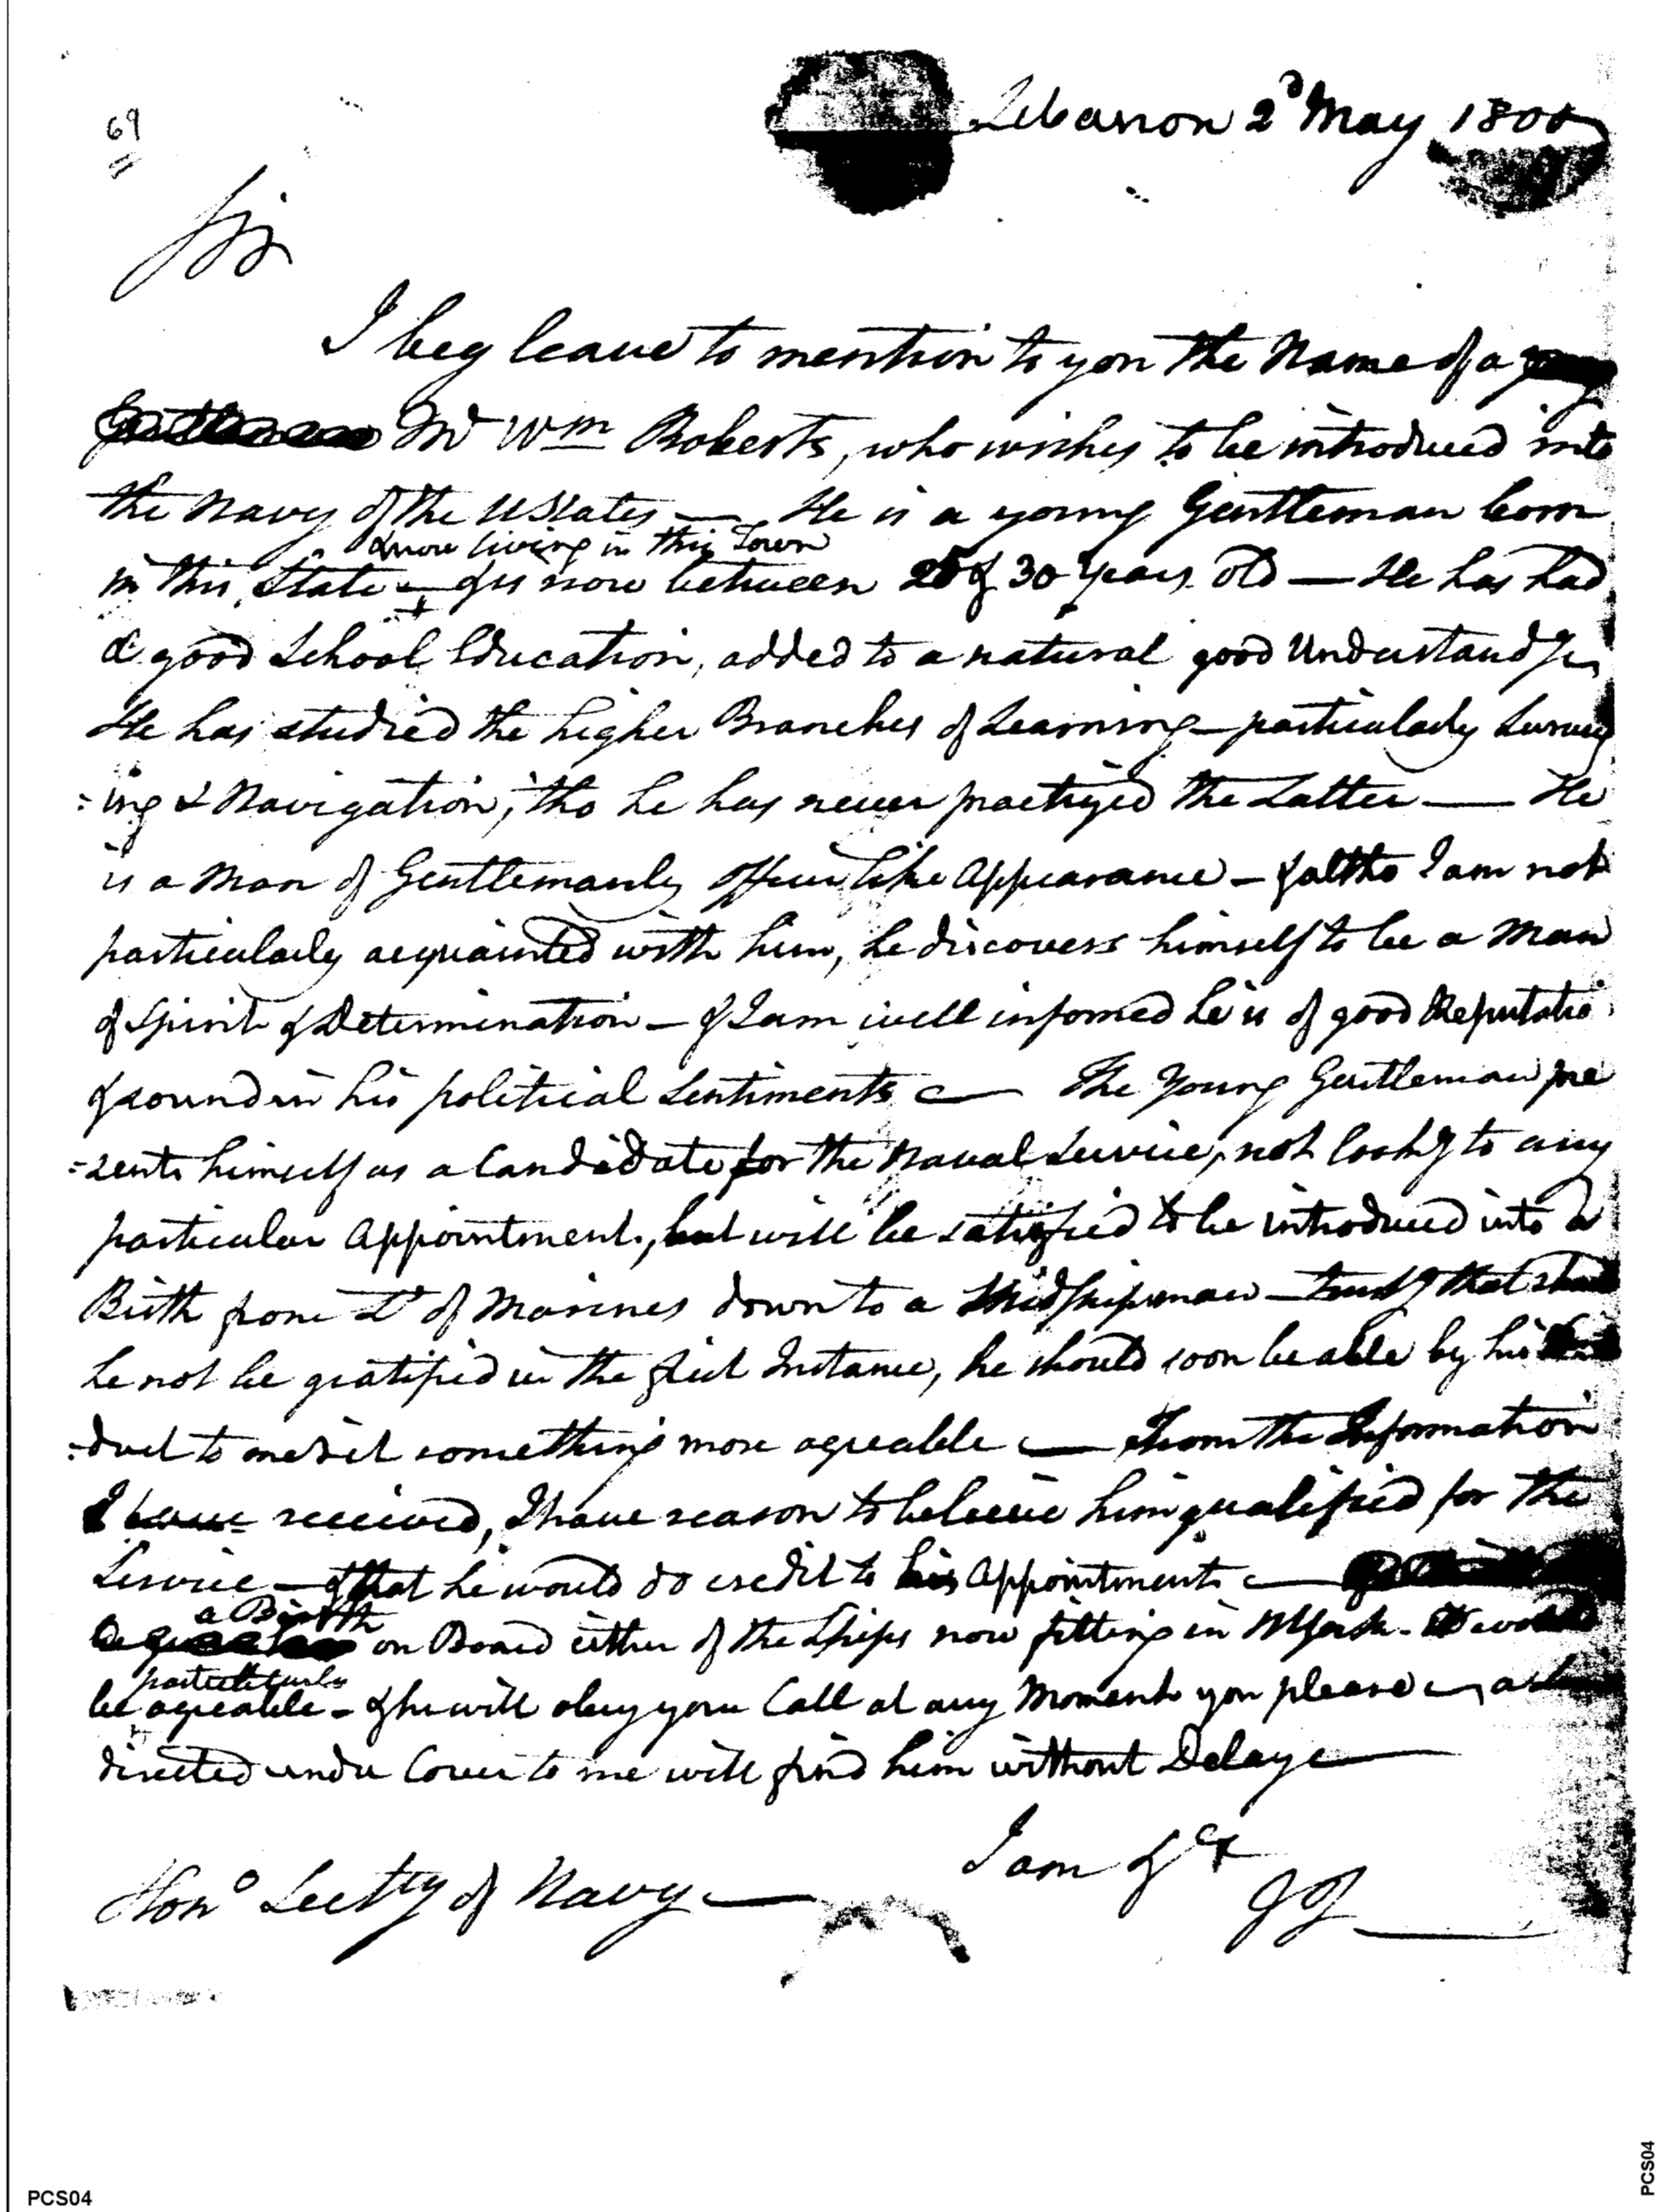 69
Lebanon 2d May 1800
Sir
I beg leave to mention to you the Name of a
Mr Wm Roberts, who wishes to be introduced into
the Navy of the UStates — He is a young Gentleman born
& now living in this Town
in this State — & is now between 25 & 30 Years old — He has had
a good School Education, added to a natural good Understandg
He has studied the higher Branches of Learning — particularly Survey
=ing & Navigation, tho he has never practised the Latter — He
is a Man of Gentlemanly Officer like Appearance — & altho I am not
particularly acquainted with him, he discovers himself to be a Man
of Spirit & Determination — & I am well informed he is of good Reputatio
& sound in his political Sentiments — The Young Gentleman pre
=sents himself as a Candidate for the Naval Service, not lookg to any
particular Appointment, but will be satisfied to be introduced into a
Birth from Lt of Marines down to a Midshipman — trustg that shod
he not be gratified in the first Instance, he should soon be able by his
=duct to merit something more agreable — From the Information
I have received, I have reason to believe him qualified for the
Service — & that he would do credit to his Appointment —
a Birth
on Board either of the Ships now fitting in NYork. It would
particularly
be agreable — & he will obey your Call at any Moment you please —
directed under Cover to me will find him without Delay —
I am &c
Hono Secrty of Navy —
JT
PCS04
PCS04